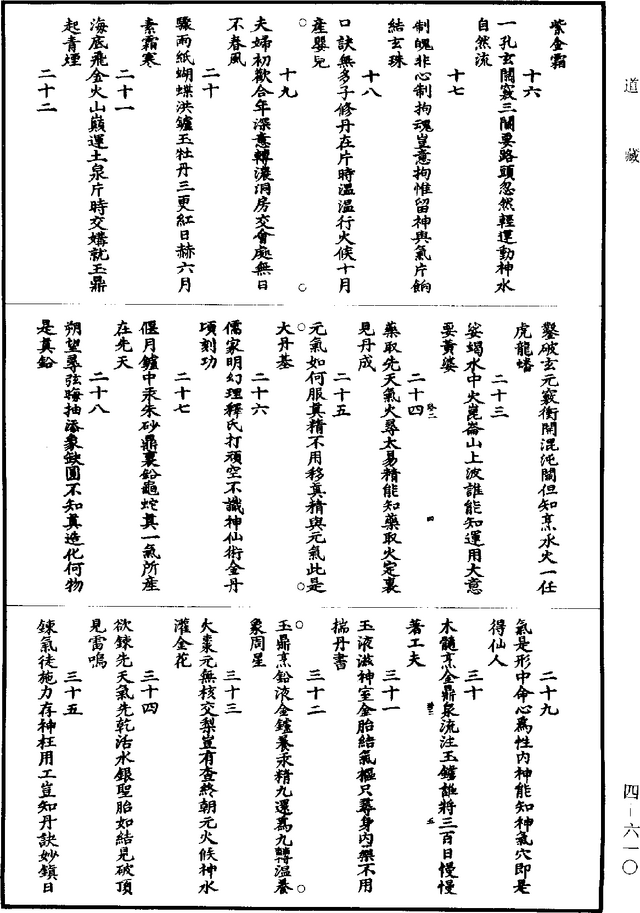 道藏
紫金霜
十六
一孔玄關竅三關要路頭忽然輕運動神水
自然流
十七
制魄非心制拘魂豈意拘惟留神與氣片餉
結玄珠
十八
口訣無多子修丹在片時溫溫行火候十月
產嬰兒
十九
夫婦初歡合年深意轉濃洞房交會處無日
不春風
二十
驟雨紙蝴蝶洪鑪玉牡丹三更紅日赫六月
素霜寒
二十一
海底飛金火山巔運土泉片時交媾就玉鼎
起青煙
二十二
鑿破玄元竅衝開混沌關但知烹水火一任
虎龍蟠
二十三
娑竭水中火崑崙山上波誰能知運用大意
要黃婆
二十四
藥取先天氣火尋太易精能知藥取火定裏
見丹成
二十五
元氣如何服真精不用移真精與元氣此是
大丹基
二十六
儒家明幻理釋氏打頑空不識神仙術金丹
頃刻功
二十七
偃月鑪中汞朱砂鼎裏鉛龜蛇真一氣所產
在先天
二十八
朔望尋弦晦抽添象缺圓不知真造化何物
是真鉛
二十九
氣是形中命心爲性內神能知神氣穴即是
得仙人
三十
木髓烹金鼎泉流注玉鑪誰將三百日慢慢
著工夫
三十一
玉液滋神室金胎結氣樞只尋身內藥不用
揣丹書
三十二
玉鼎烹鉛液金鑪養汞精九還爲九轉溫養
象周星
三十三
火棗元無核交梨豈有查終朝元火候神水
灌金花
三十四
欲鍊先天氣先乾活水銀聖胎如結見破頂
見雷鳴
三十五
鍊氣徒施力存神枉用工豈知丹訣妙鎮日
四－六一〇